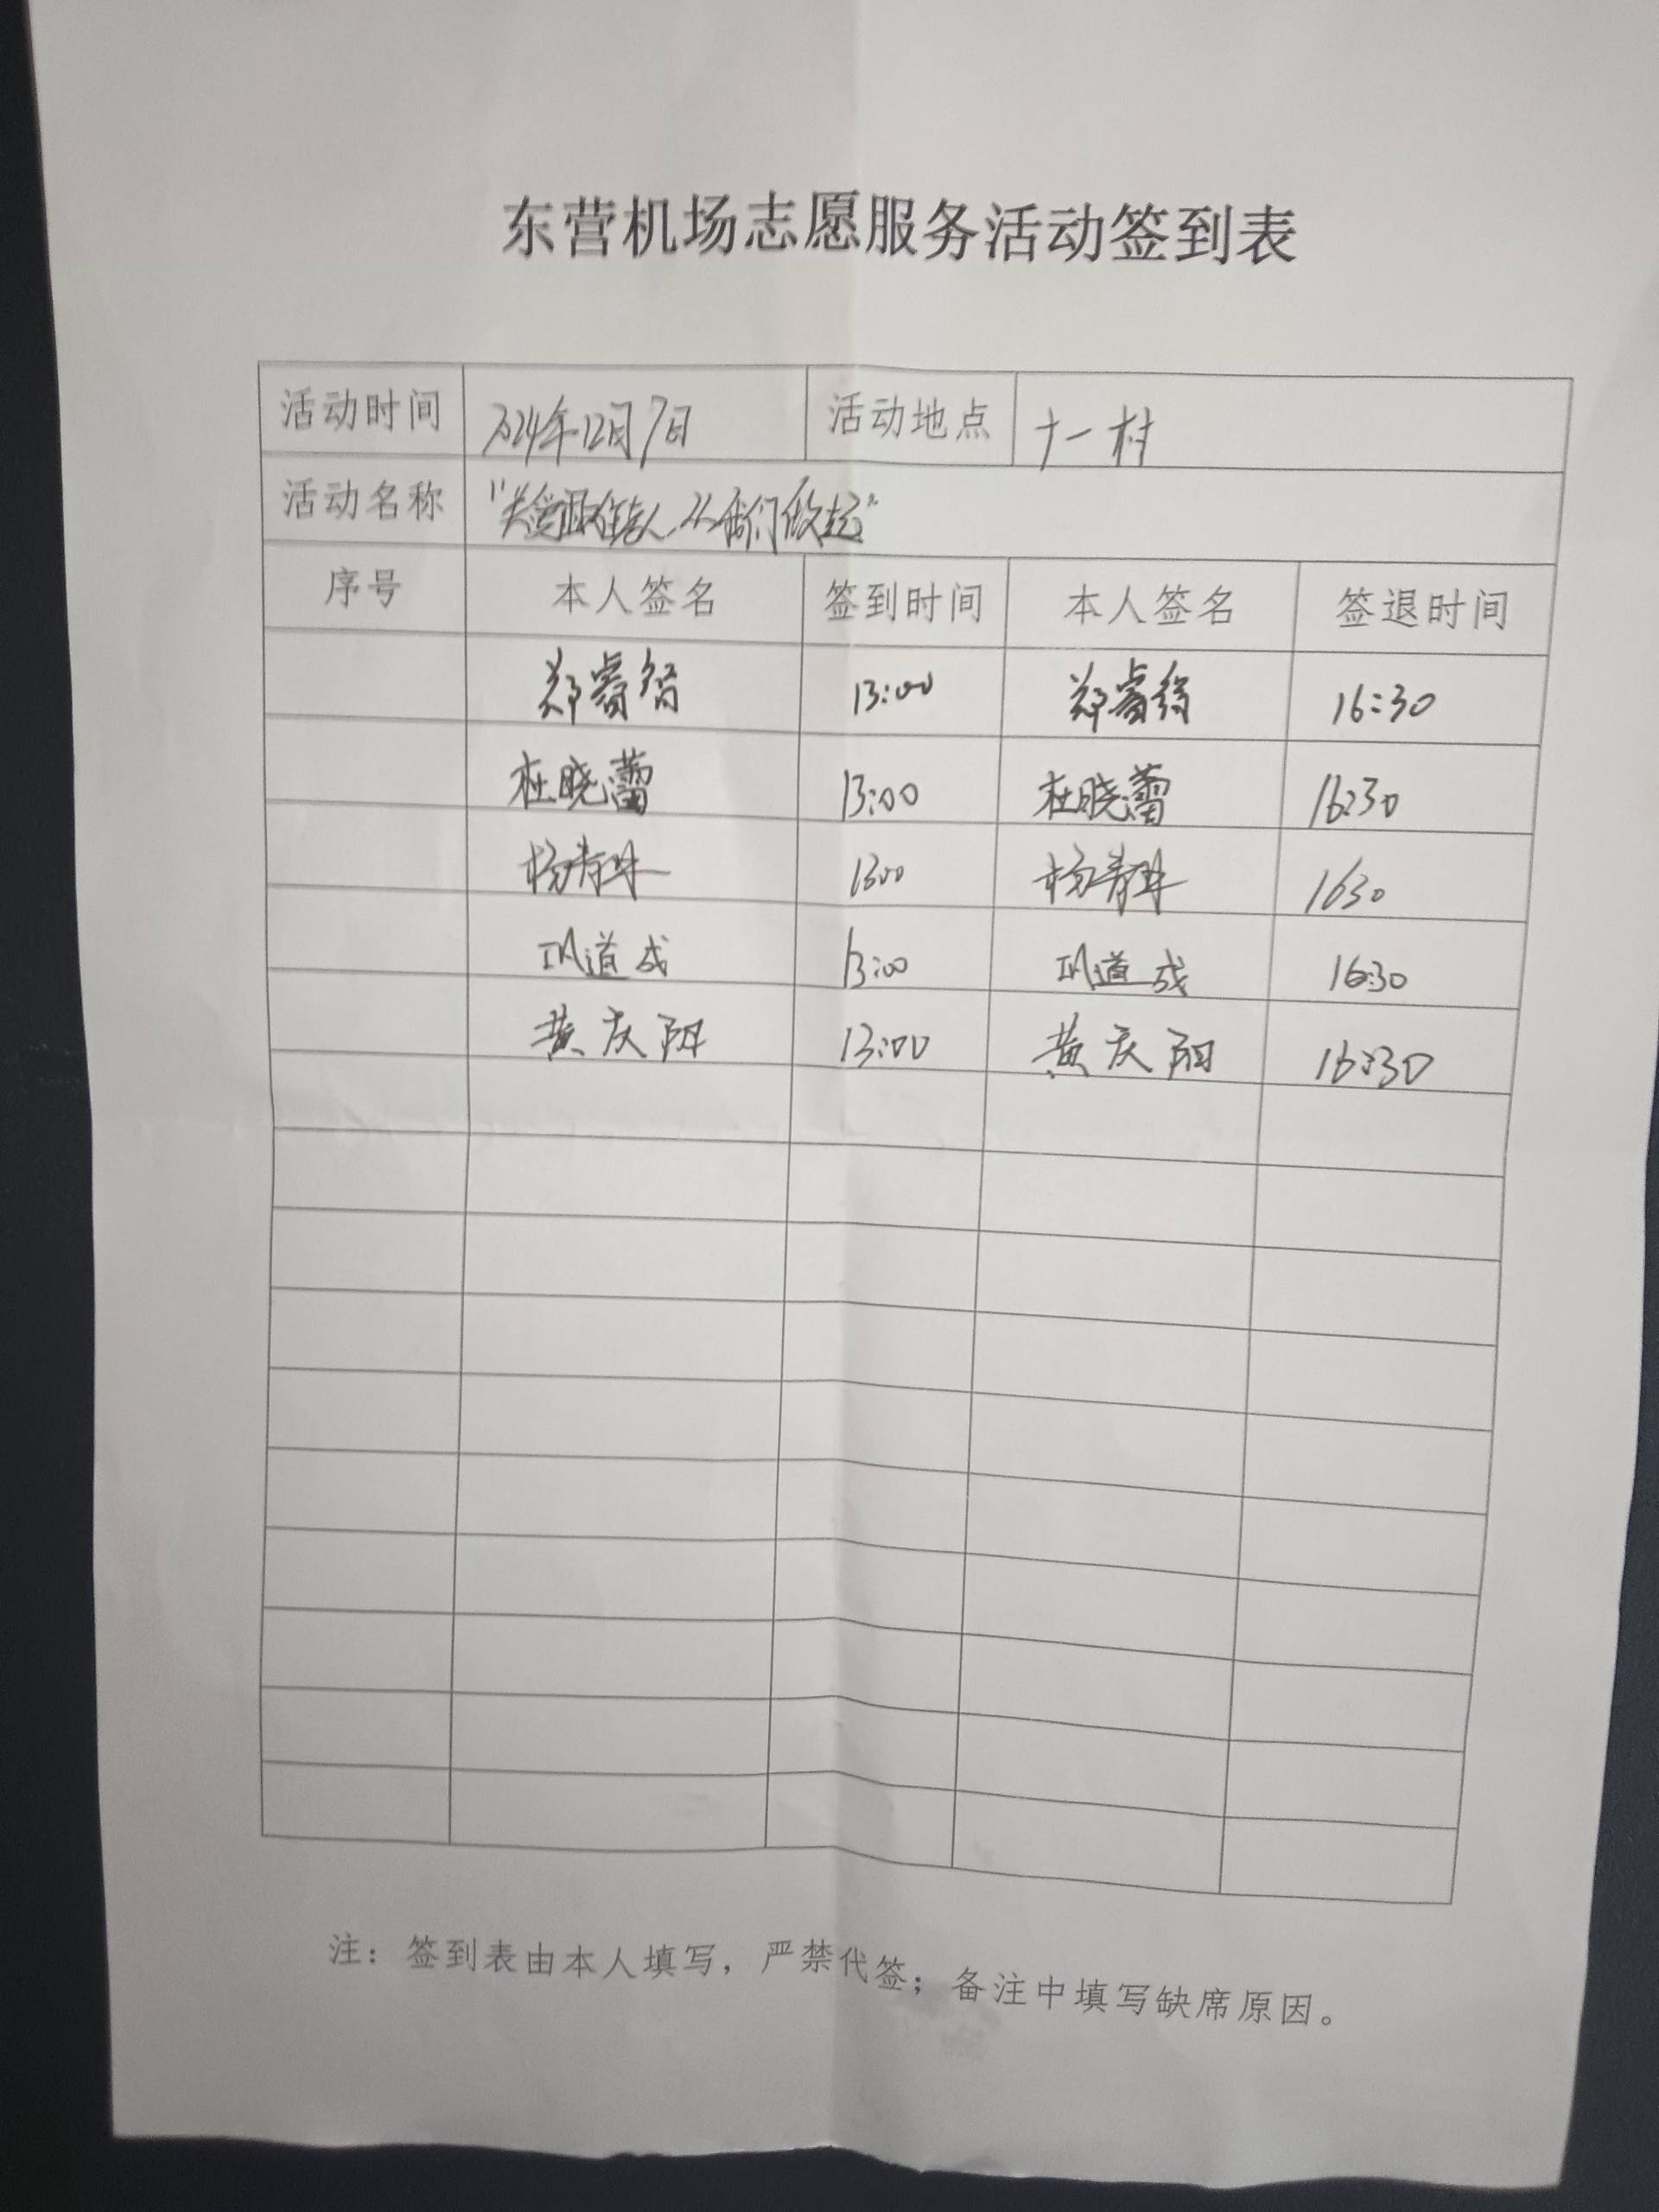 东营机场志愿服务活动签到表
活动时间 2024年12月7日 活动地点 十一村
活动名称 "关爱困难老人,从我们做起"
序号 本人签名 签到时间 本人签名 签退时间
郑睿 13:00 郑睿 16:30
杜晓蕾 13:00 杜晓蕾 16:30
杨青 1300 杨青 1630
巩道成 13:00 巩道成 16:30
黄庆阳 13:00 黄庆阳 16:30
注：签到表由本人填写，严禁代签；备注中填写缺席原因。